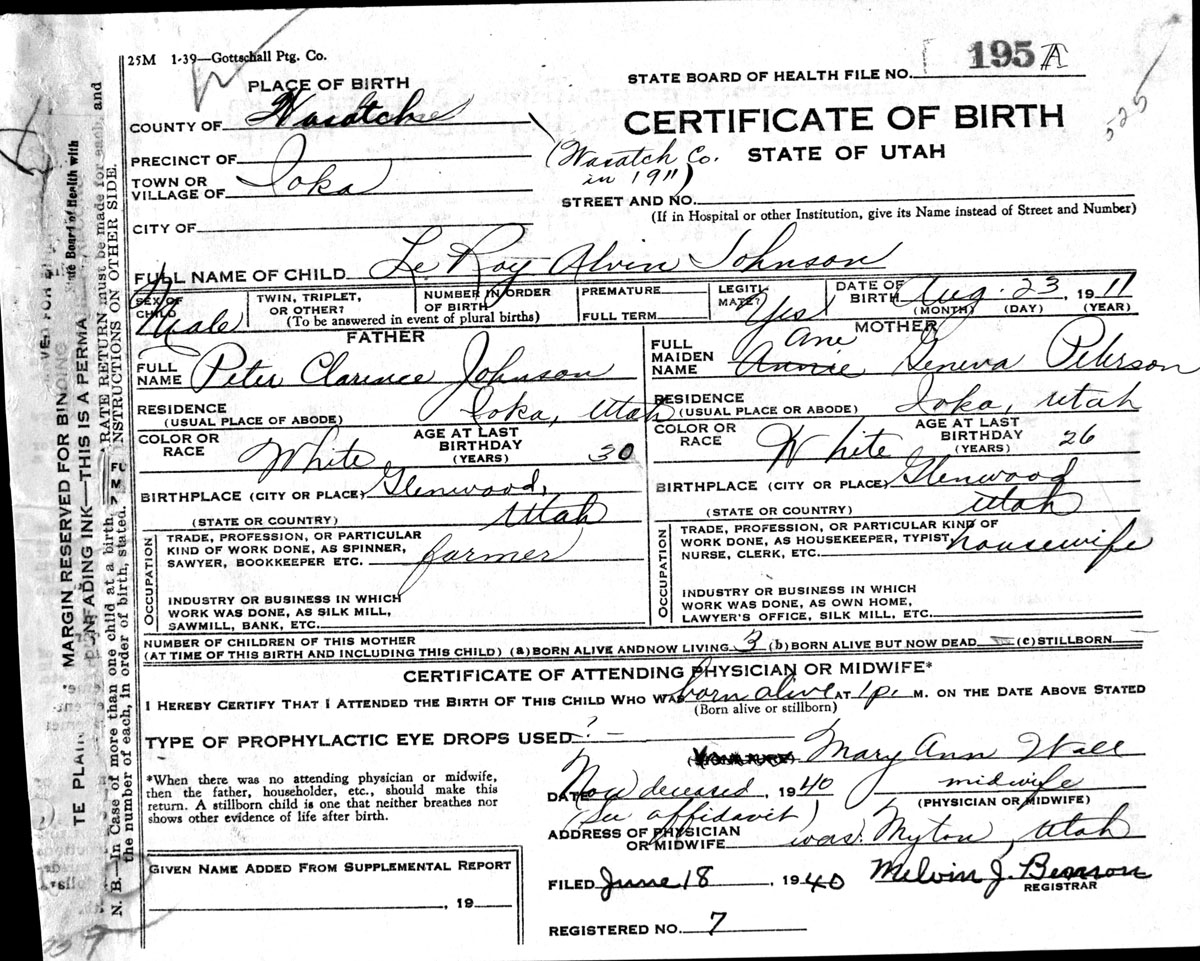 25M 1-39—Gottschall Ptg. Co.
195 A
STATE BOARD OF HEALTH FILE NO.
525
PLACE OF BIRTH
COUNTY OF Wasatch
CERTIFICATE OF BIRTH
STATE OF UTAH
(Wasatch Co.
in 1911)
PRECINCT OF
TOWN OR
VILLAGE OF Ioka
STREET AND NO.
(If in Hospital or other Institution, give its Name instead of Street and Number)
CITY OF
FULL NAME OF CHILD Le Roy Alvin Johnson
SEX OF
CHILD Male
TWIN, TRIPLET,
OR OTHER?
NUMBER IN ORDER
OF BIRTH
(To be answered in event of plural births)
PREMATURE
FULL TERM
LEGITI-
MATE? Yes
DATE OF
BIRTH Aug. 23, 1911
(MONTH) (DAY) (YEAR)
FATHER
FULL
NAME Peter Clarence Johnson
RESIDENCE Ioka, Utah
(USUAL PLACE OF ABODE)
COLOR OR
RACE White
AGE AT LAST
BIRTHDAY
(YEARS) 30
BIRTHPLACE (CITY OR PLACE) Glenwood,
(STATE OR COUNTRY) Utah
OCCUPATION
TRADE, PROFESSION, OR PARTICULAR
KIND OF WORK DONE, AS SPINNER,
SAWYER, BOOKKEEPER ETC. farmer
INDUSTRY OR BUSINESS IN WHICH
WORK WAS DONE, AS SILK MILL,
SAWMILL, BANK, ETC.
MOTHER
FULL
MAIDEN
NAME Annie Ane Geneva Peterson
RESIDENCE Ioka, Utah
(USUAL PLACE OR ABODE)
COLOR OR
RACE White
AGE AT LAST
BIRTHDAY
(YEARS) 26
BIRTHPLACE (CITY OR PLACE) Glenwood
(STATE OR COUNTRY) Utah
OCCUPATION
TRADE, PROFESSION, OR PARTICULAR KIND OF
WORK DONE, AS HOUSEKEEPER, TYPIST,
NURSE, CLERK, ETC. housewife
INDUSTRY OR BUSINESS IN WHICH
WORK WAS DONE, AS OWN HOME,
LAWYER'S OFFICE, SILK MILL, ETC.
NUMBER OF CHILDREN OF THIS MOTHER
(AT TIME OF THIS BIRTH AND INCLUDING THIS CHILD) (a) BORN ALIVE AND NOW LIVING 3 (b) BORN ALIVE BUT NOW DEAD — (c) STILLBORN —
CERTIFICATE OF ATTENDING PHYSICIAN OR MIDWIFE*
I HEREBY CERTIFY THAT I ATTENDED THE BIRTH OF THIS CHILD WHO WAS born alive AT 1 p. M. ON THE DATE ABOVE STATED
(Born alive or stillborn)
TYPE OF PROPHYLACTIC EYE DROPS USED ? —
Mary Ann Wall
*When there was no attending physician or midwife,
then the father, householder, etc., should make this
return. A stillborn child is one that neither breathes nor
shows other evidence of life after birth.
DATE Now deceased, 1940
midwife
(PHYSICIAN OR MIDWIFE)
(See affidavit)
ADDRESS OF PHYSICIAN
OR MIDWIFE was: Myton, Utah
GIVEN NAME ADDED FROM SUPPLEMENTAL REPORT
, 19
FILED June 18, 1940 Melvin J. Benson
REGISTRAR
REGISTERED NO. 7
MARGIN RESERVED FOR BINDING
UNFADING INK—THIS IS A PERMA
N. B.—In Case of more than one child at a birth,
RATE RETURN must be made for each, and
the number of each, in order of birth, stated.
INSTRUCTIONS ON OTHER SIDE.